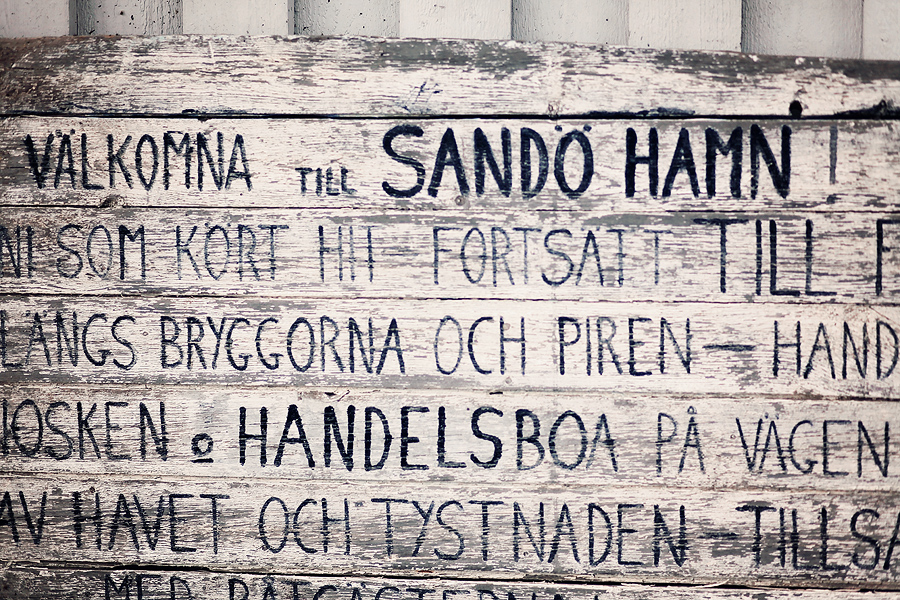 VÄLKOMNA TILL SANDÖ HAMN!
NI SOM KÖRT HIT – FORTSÄTT TILL F
LÄNGS BRYGGORNA OCH PIREN – HAND
IOSKEN o HANDELSBOA PÅ VÄGEN
AV HAVET OCH TYSTNADEN – TILLSA
MED BÅTGÄSTERNA!